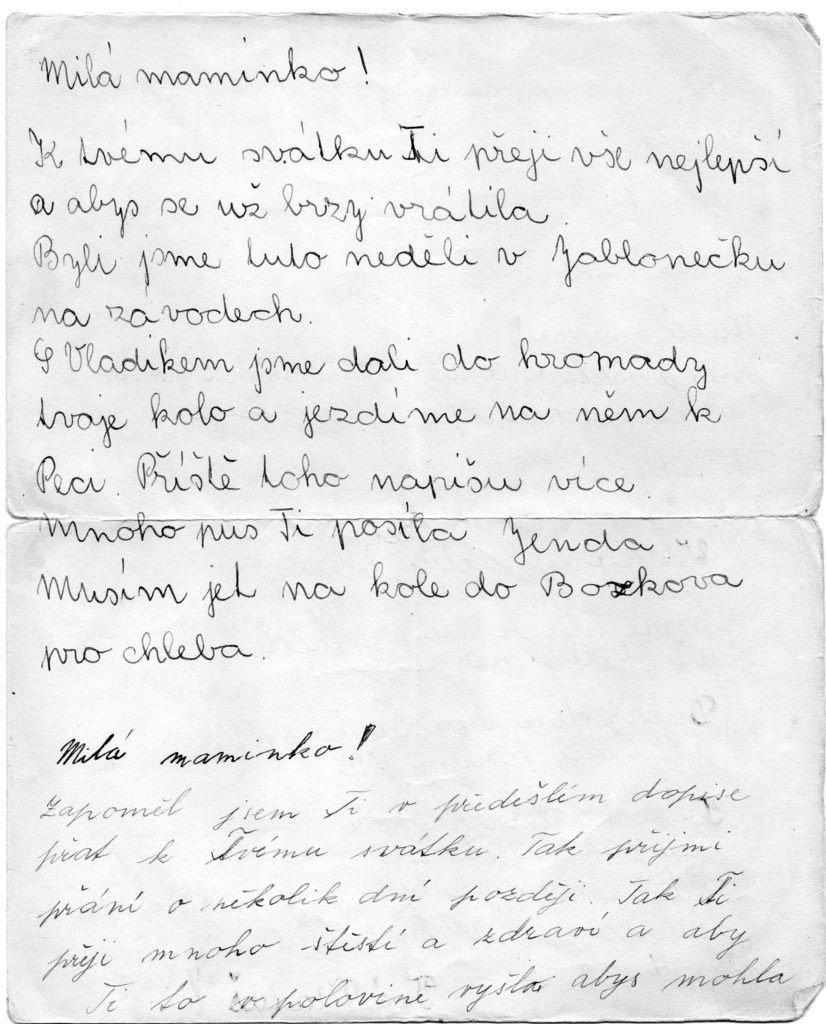 Milá maminko!
K tvému svátku Ti přeji vše nejlepší
a abys se už brzy vrátila.
Byli jsme tuto neděli v Jablonečku
na závodech.
S Vladikem jsme dali do hromady
tvoje kolo a jezdíme na něm k
Peci. Příště toho napíšu více.
Mnoho pus Ti posíla Jenda.
Musím jet na kole do Bozkova
pro chleba.
Milá maminko!
Zapoměl jsem Ti v předešlém dopise
přat k Tvému svátku. Tak přijmi
přání o několik dní později. Tak Ti
přeji mnoho štěstí a zdraví a aby
Ti to v polovině vyšlo abys mohla